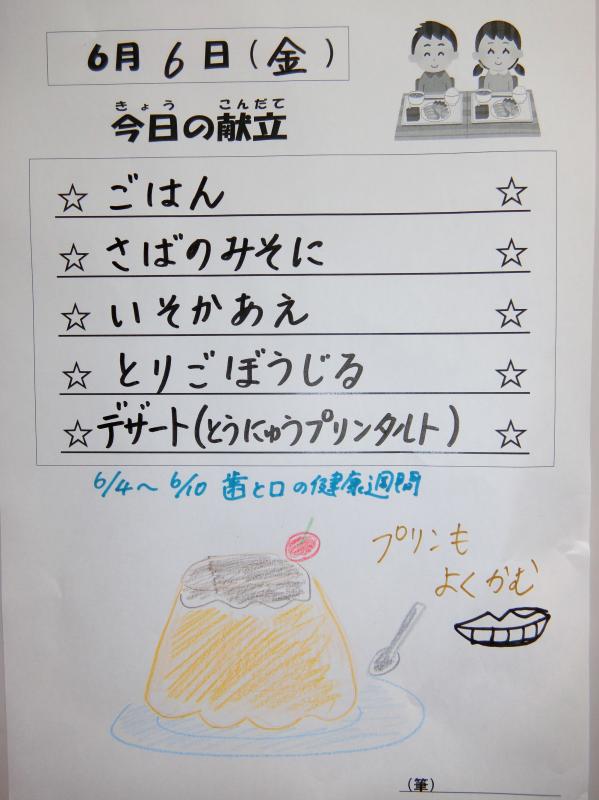 6月6日(金)
きょう こんだて
今日の献立
☆ ごはん ☆
☆ さばのみそに ☆
☆ いそかあえ ☆
☆ とりごぼうじる ☆
☆ デザート(とうにゅうプリンタルト) ☆
6/4〜6/10 歯と口の健康週間
プリンも
よくかむ
(筆)